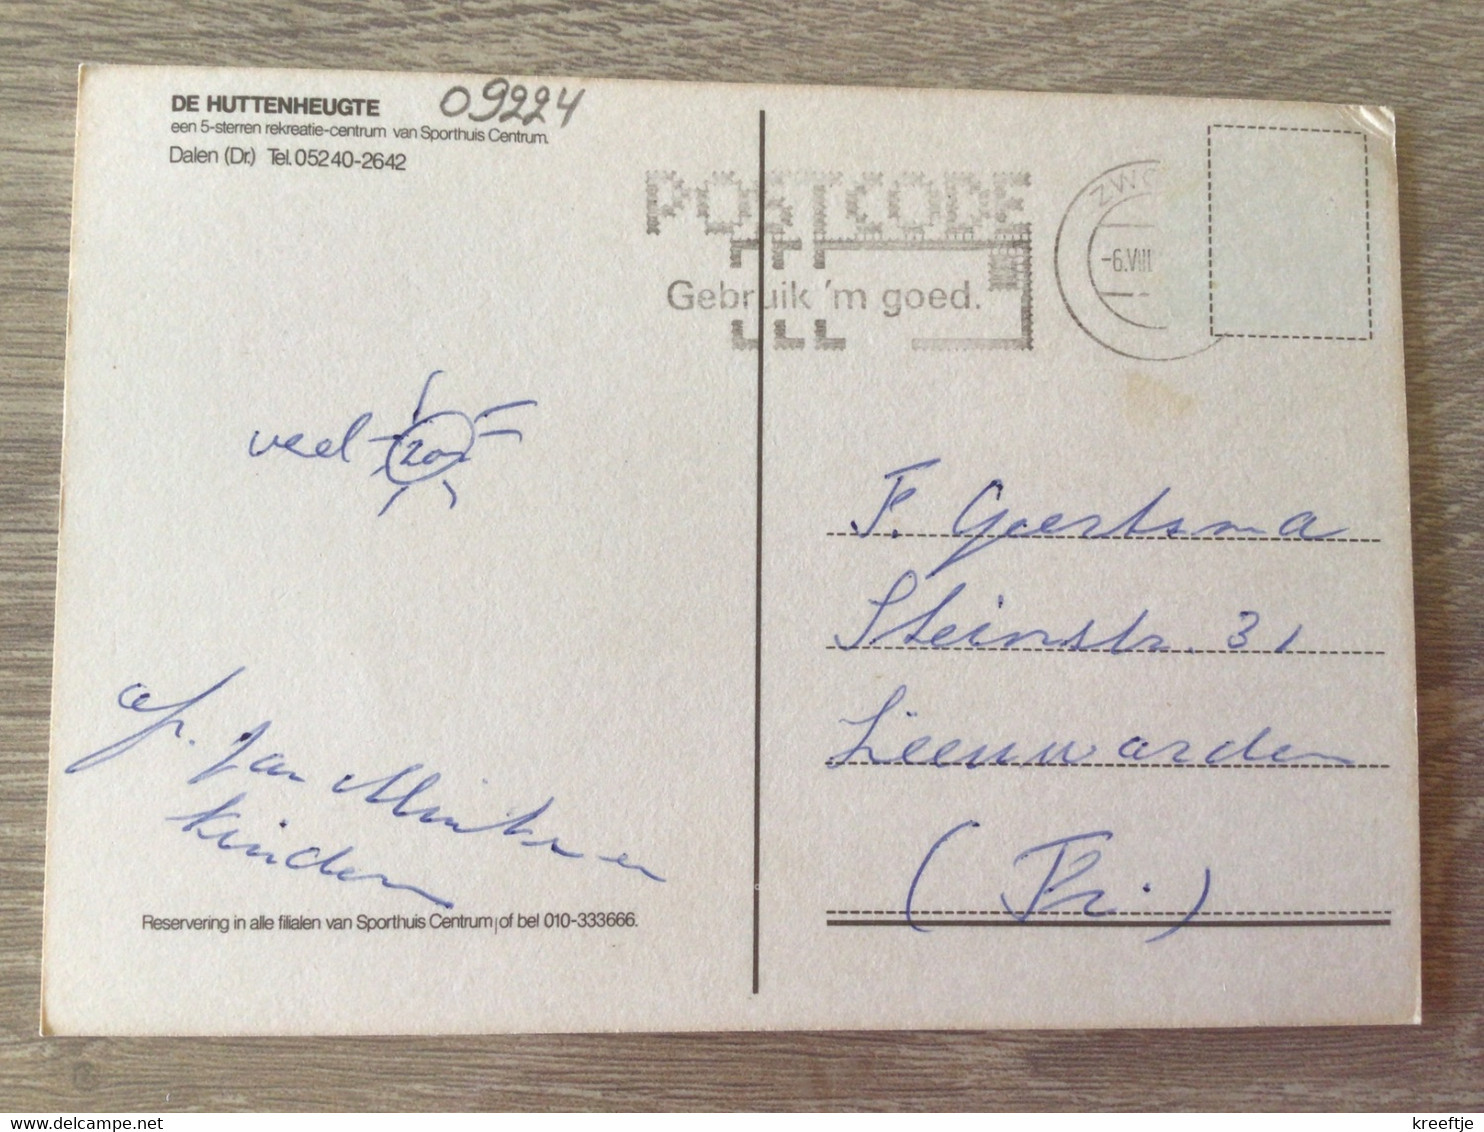 DE HUTTENHEUGTE
een 5-sterren rekreatie-centrum van Sporthuis Centrum.
Dalen (Dr.) Tel. 05240-2642
09224
POSTCODE
Gebruik 'm goed.
ZWO
-6.VIII
veel 20
F. Geertsma
Steinstr. 31
Leeuwarden
(Fr.)
Jan
kinderen
Reservering in alle filialen van Sporthuis Centrum of bel 010-333666.
kreeftje